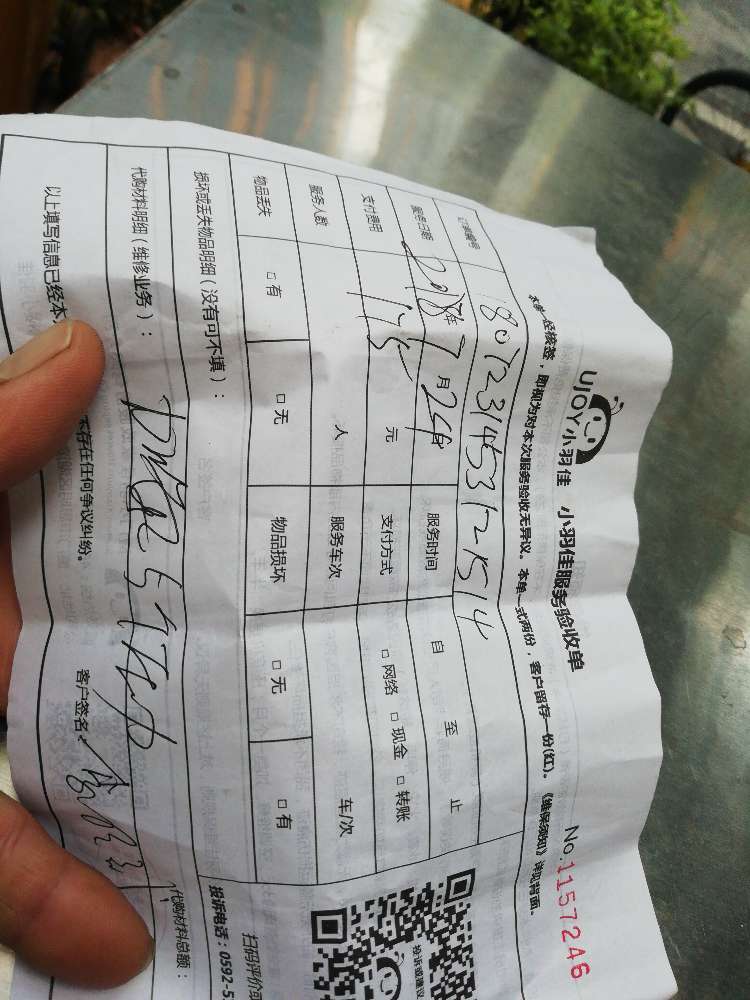 UJOY小羽佳 小羽佳服务验收单
No.1157246
本单一经核签，即视为对本次服务验收无异议。本单一式两份，客户留存一份(红)。《维保须知》详见背面。
订单编号 180723145312-1514
服务日期 2018年7月24日 服务时间 自 至 止
支付费用 175元 支付方式 □网络 □现金 □转账
服务人数 人 服务车次 车/次
物品丢失 □有 □无 物品损坏 □无 □有
损坏或丢失物品明细（没有可不填）：
代购材料明细（维修业务）：
代购材料总额：
以上填写信息已经本
未存在任何争议纠纷。 客户签名：
投诉或建议
扫码评价或
投诉电话：0592-5